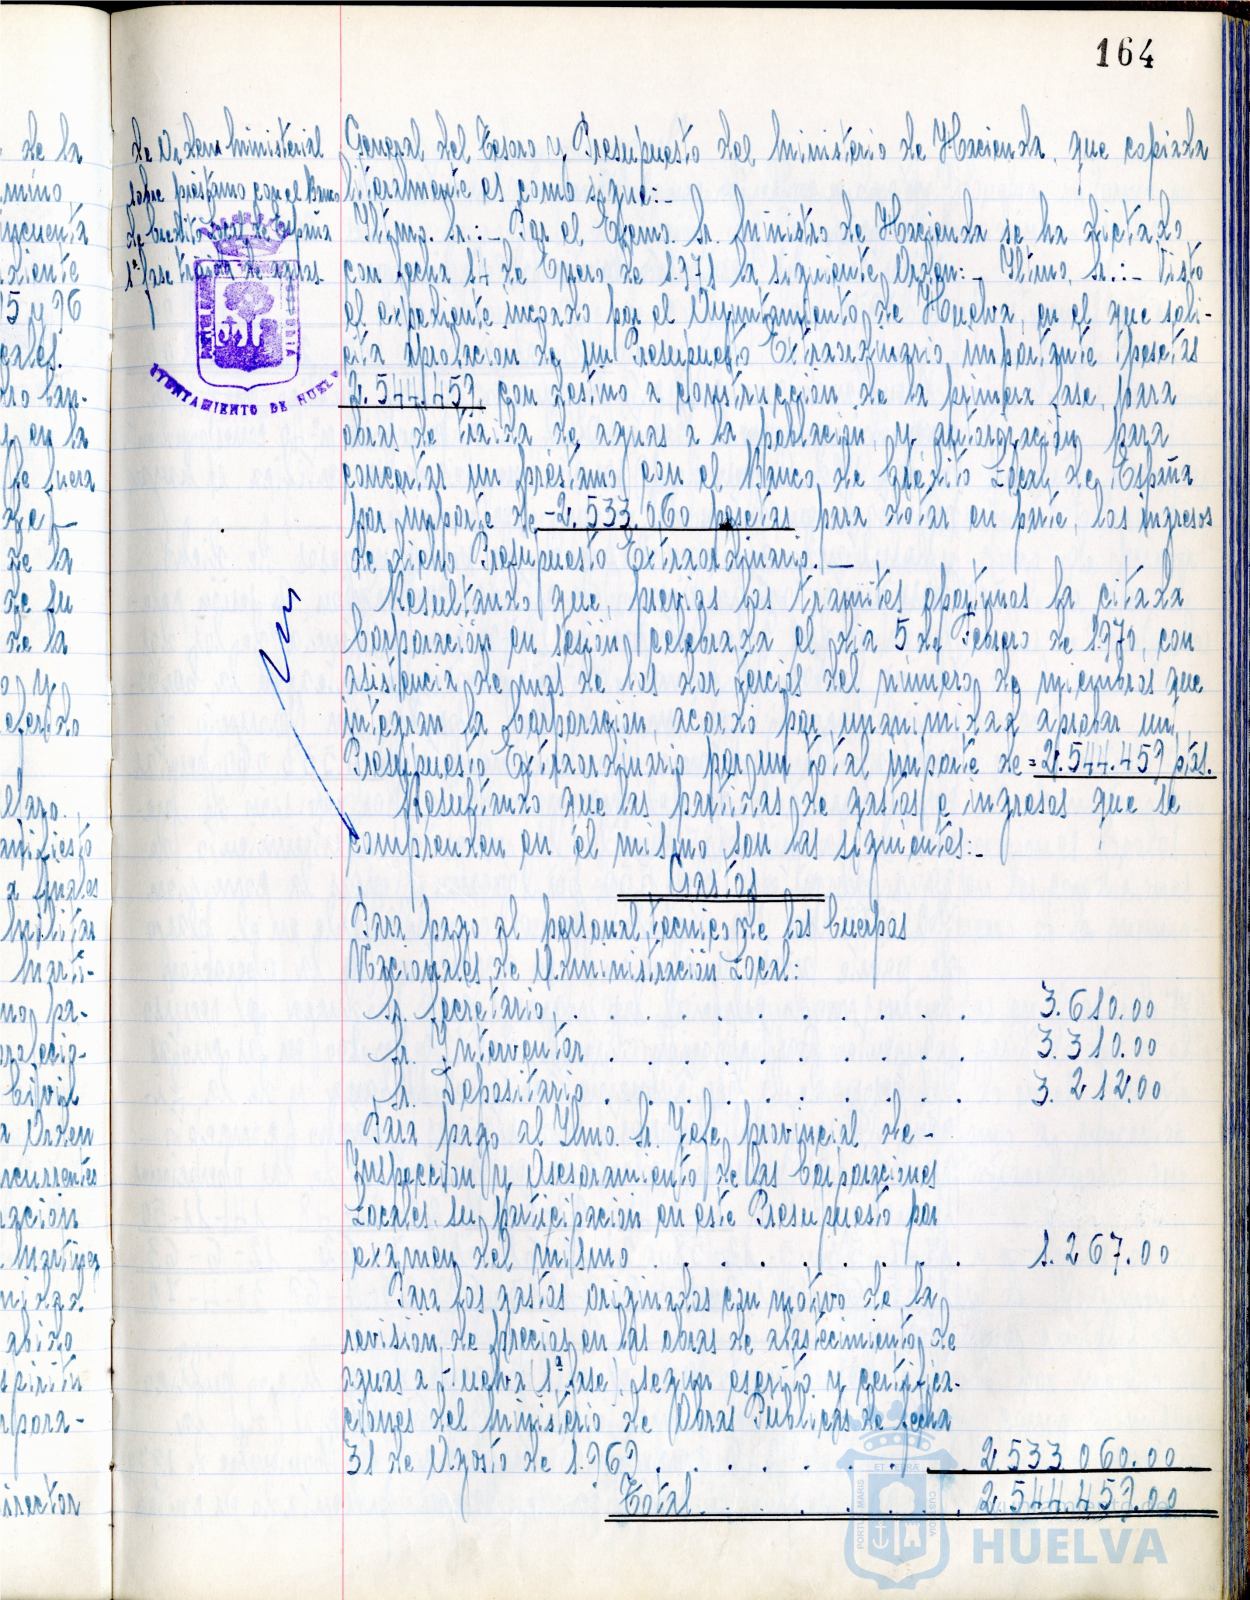 164
de Orden Ministerial
sobre préstamo con el Banco
de Crédito Local de España
1ª fase traida de aguas.
AYUNTAMIENTO DE HUELVA
General del Tesoro y Presupuesto del Ministerio de Hacienda, que copiada
literalmente es como sigue:-
Iltmo. Sr.:- Por el Excmo. Sr. Ministro de Hacienda se ha dictado
con fecha 14 de Enero de 1.971 la siguiente Orden:- Iltmo. Sr.:- Visto
el expediente incoado por el Ayuntamiento de Huelva, en el que soli-
cita aprobacion de un Presupuesto Extraordinario importante (pesetas
2.544.459, con destino a construcción de la primera fase para
obras de traida de aguas a la población, y autorización para
concertar un préstamo con el Banco de Crédito Local de España
por importe de -2.533.060 pesetas para dotar en parte, los ingresos
de dicho Presupuesto Extraordinario.-
Resultando que, previos los tramites oportunos la citada
Corporación en sesión celebrada el dia 5 de Febrero de 1.970, con
asistencia de mas de los dos tercios del número de miembros que
integran la Corporación, acordó por unanimidad aprobar un
Presupuesto Extraordinario por un total importe de =2.544.459 ptas.
Resultando que las partidas de gastos e ingresos que se
comprenden en el mismo son las siguientes:-
Gastos
Para pago al personal tecnico de los Cuerpos
Nacionales de Administración Local:
Sr. Secretario . . . . . . . . . 3.610.00
Sr. Interventor . . . . . . . . 3.310.00
Sr. Depositario . . . . . . . . 3.212.00
Para pago al Ilmo. Sr. Jefe provincial de-
Inspeccion y Asesoramiento de las Corporaciones
Locales su participacion en este Presupuesto por
examen del mismo . . . . . . . . 1.267.00
Para los gastos originados con motivo de la
revisión de precios en las obras de abastecimiento de
aguas a Huelva (1ª fase), segun escrito y certifica-
ciones del Ministerio de Obras Publicas de fecha
31 de Agosto de 1.969 . . . . . . . 2.533.060.00
Total . . . . . . . 2.544.459.00
HUELVA